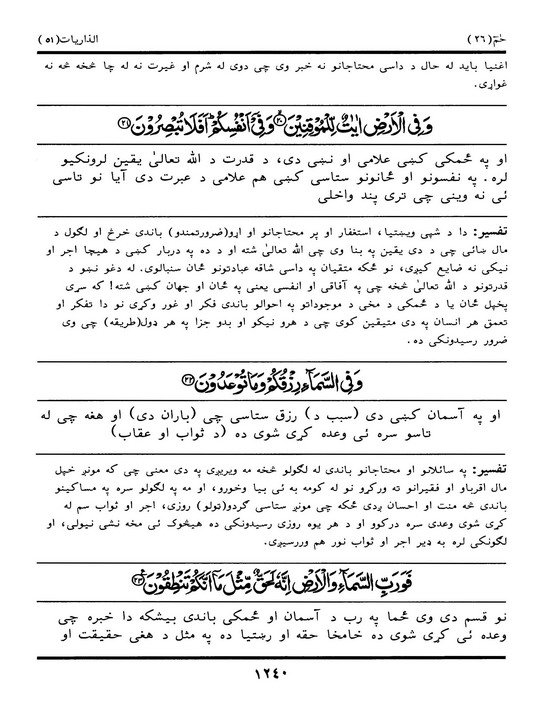 حٰمٓ (۲٦)
الذاريات (۵۱)
اغنيا بايد له حال د داسی محتاجانو نه خبر وی چی دوی له شرم او غيرت نه له چا څخه څه نه
غواړی.
وَفِی الْاَرْضِ اٰیٰتٌ لِّلْمُوْقِنِیْنَ ﴿۲۰﴾ وَفِیْ اَنْفُسِکُمْ ؕ اَفَلَا تُبْصِرُوْنَ ﴿۲۱﴾
او په ځمکی کښی علامی او نښی دی، د قدرت د الله تعالیٰ يقين لرونکيو
لره. په نفسونو او ځانونو ستاسی کښی هم علامی د عبرت دی آيا نو تاسی
ئی نه وينی چی تری پند واخلی
تفسير: دا د شپی ويښتيا، استغفار او پر محتاجانو او اړو(ضرورتمندو) باندی خرڅ او لګول د
مال ښائی چی د دی يقين په بنا وی چی الله تعالیٰ شته او د ده په دربار کښی د هيچا اجر او
نيکی نه ضايع کيږی، نو ځکه متقيان په داسی شاقه عبادتونو ځان سنبالوی. له دغو نښو د
قدرتونو د الله تعالیٰ څخه چی په آفاقی او انفسی يعنی په ځان او جهان کښی شته! که سړی
پخپل ځان يا د ځمکی د مخی د موجوداتو په احوالو باندی فکر او غور وکړی نو دا تفکر او
تعمق هر انسان په دی متيقين کوی چی د هرو نيکو او بدو جزا په هر دول(طريقه) چی وی
ضرور رسيدونکی ده.
وَفِی السَّمَآءِ رِزْقُکُمْ وَمَا تُوْعَدُوْنَ ﴿۲۲﴾
او په آسمان کښی دی (سبب د) رزق ستاسی چی (باران دی) او هغه چی له
تاسو سره ئی وعده کړی شوی ده (د ثواب او عقاب)
تفسير: په سائلانو او محتاجانو باندی له لګولو څخه مه ويريږی په دی معنی چی که مونږ خپل
مال اقرباو او فقيرانو ته ورکړو نو له کومه به ئی بيا وخورو، او مه په لګولو سره په مساکينو
باندی څه منت او احسان ږدی ځکه چی مونږ ستاسی ګردو(ټولو) روزی، اجر او ثواب سم له
کړی شوی وعدی سره درکوو او د هر يوه روزی رسيدونکی ده هيڅوک ئی مخه نشی نيولی، او
لګونکی لره به ډير اجر او ثواب نور هم وررسيږی.
فَوَرَبِّ السَّمَآءِ وَالْاَرْضِ اِنَّهٗ لَحَقٌّ مِّثْلَ مَاۤ اَنَّکُمْ تَنْطِقُوْنَ ﴿۲۳﴾
نو قسم دی وی ځما په رب د آسمان او ځمکی باندی بيشکه دا خبره چی
وعده ئی کړی شوی ده خامخا حقه او رښتيا ده په مثل د هغی حقيقت او
۱۲٤۰